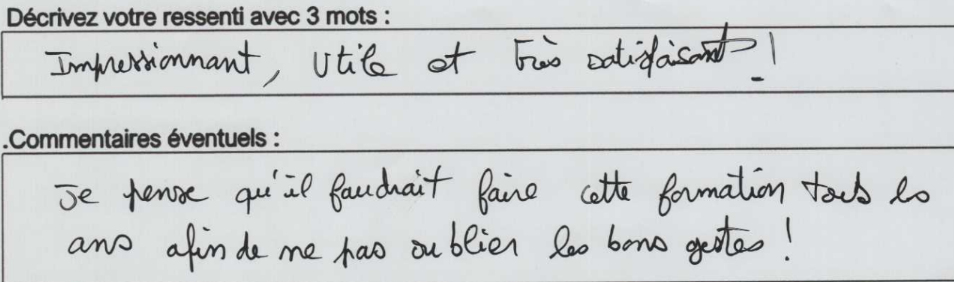 Décrivez votre ressenti avec 3 mots :
Impressionnant, Utile et très satisfaisant !
.Commentaires éventuels :
Je pense qu'il faudrait faire cette formation tous les
ans afin de ne pas oublier les bons gestes !